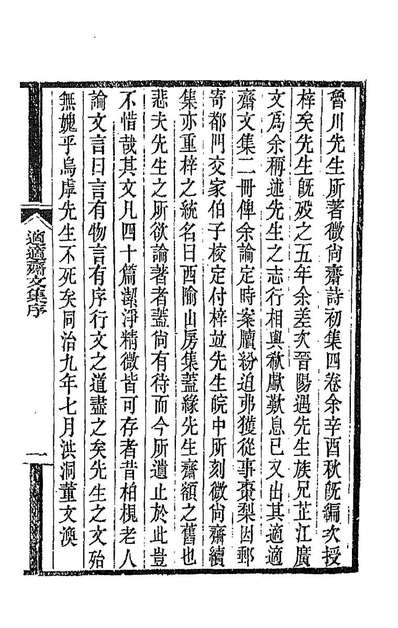 魯川先生所著微尙齋詩初集四卷余辛酉秋旣編次授
梓矣先生旣歿之五年余差次晉陽遇先生族兄芷江廣
文爲余稱述先生之志行相與欷歔歎息已又出其適適
齋文集二冊俾余論定時案牘紛迫弗獲從事棗梨因郵
寄都門交家伯子校定付梓竝先生皖中所刻微尙齋續
集亦重梓之統名曰西隃山房集蓋緣先生齋額之舊也
悲夫先生之所欲論著者蓋尙有待而今所遺止於此豈
不惜哉其文凡四十篇潔淨精微皆可存者昔柏梘老人
論文言曰言有物言有序行文之道盡之矣先生之文殆
無媿乎烏虖先生不死矣同治九年七月洪洞董文渙
適適齋文集序
一